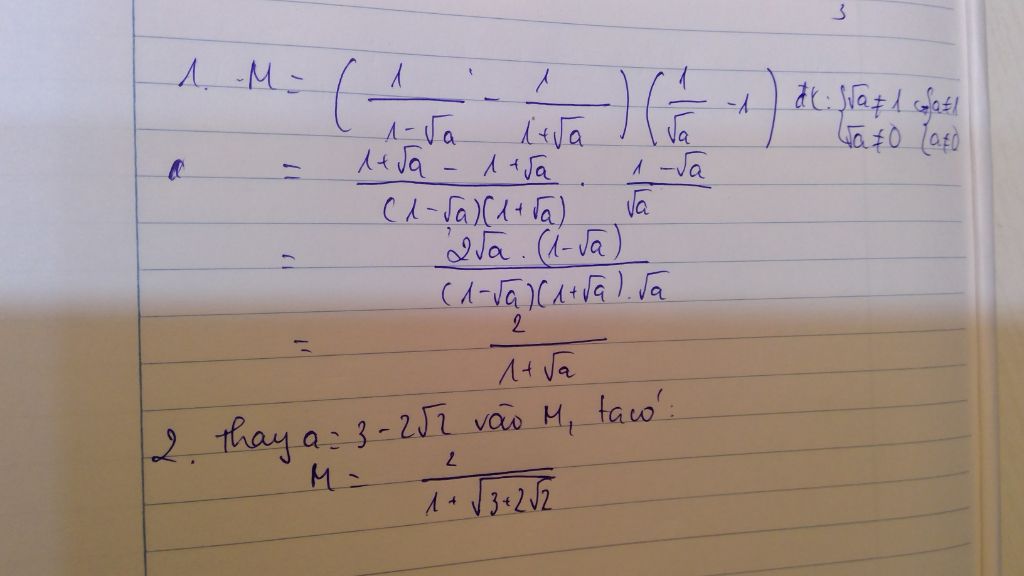 3
1. M = ( 1/(1-√a) - 1/(1+√a) ) ( 1/√a - 1 ) đk: { √a ≠ 1 { a ≠ 1
{ √a ≠ 0 { a ≠ 0
= (1+√a - 1+√a)/((1-√a)(1+√a)) . (1-√a)/√a
= (2√a . (1-√a))/((1-√a)(1+√a).√a)
= 2/(1+√a)
2. thay a = 3 - 2√2 vào M, ta có:
M = 2/(1 + √(3+2√2))